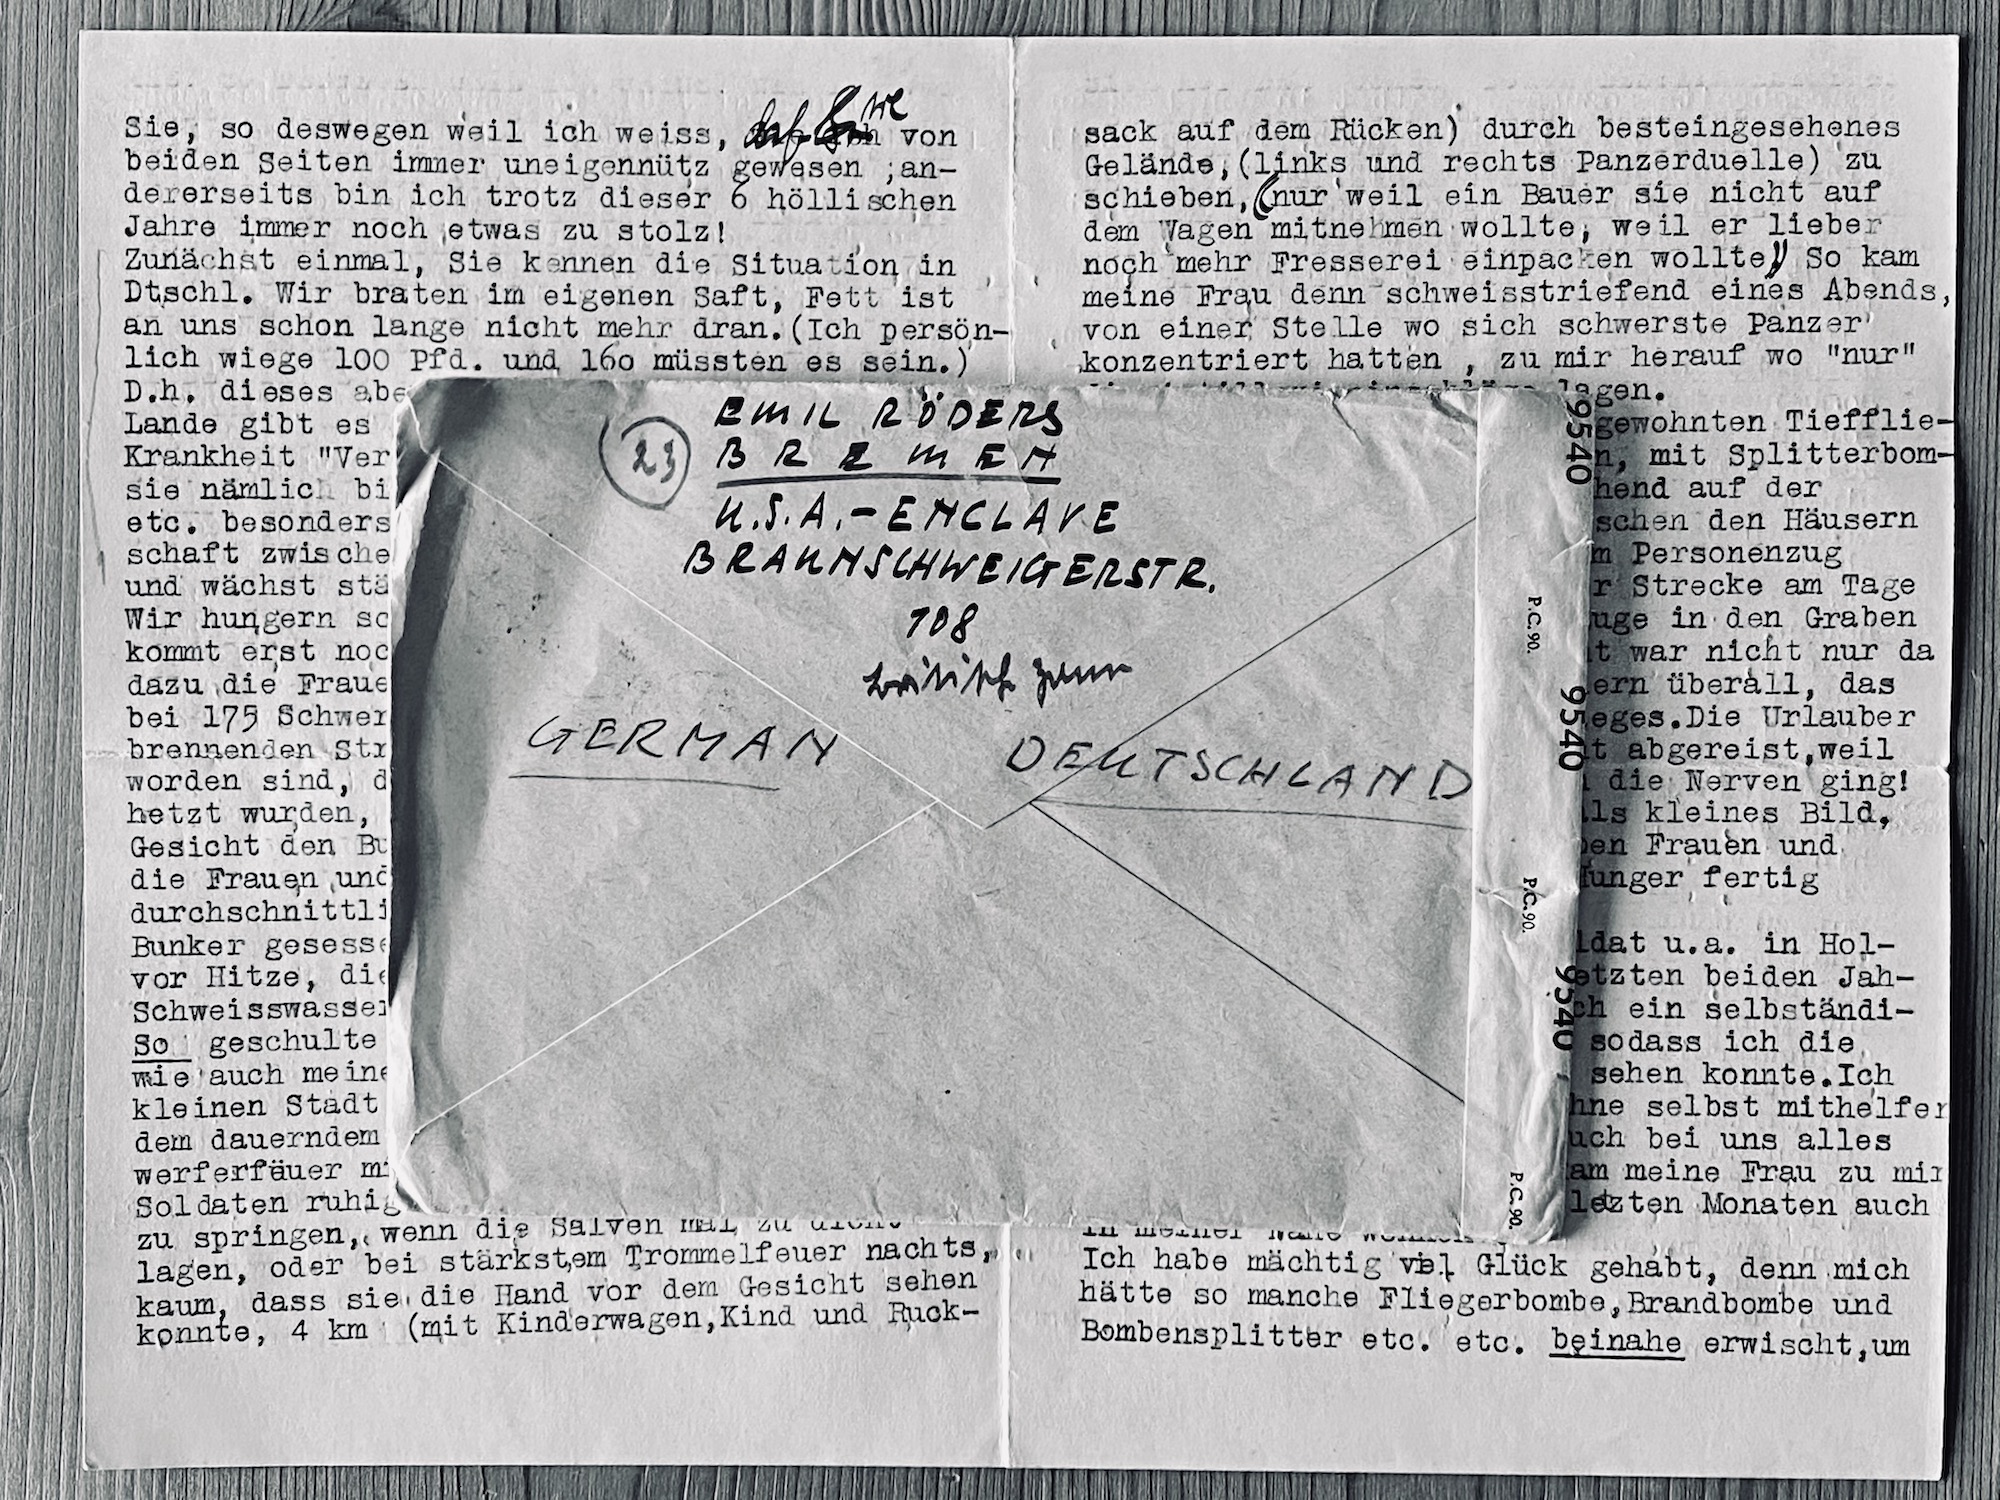 Sie, so deswegen weil ich weiss, wie von
beiden Seiten immer uneigennütz gewesen ;an-
dererseits bin ich trotz dieser 6 höllischen
Jahre immer noch etwas zu stolz!
Zunächst einmal, Sie kennen die Situation in
Dtschl. Wir braten im eigenen Saft, Fett ist
an uns schon lange nicht mehr dran.(Ich persön-
lich wiege 100 Pfd. und 160 müssten es sein.)
D.h. dieses abe
Lande gibt es
Krankheit "Ver
sie nämlich bi
etc. besonders
schaft zwische
und wächst stä
Wir hungern sc
kommt erst noc
dazu die Fraue
bei 175 Schwer
brennenden Str
worden sind, d
hetzt wurden,
Gesicht den Bu
die Frauen und
durchschnittli
Bunker gesesse
vor Hitze, die
Schweisswasser
So geschulte
wie auch meine
kleinen Stadt
dem dauerndem
werferfäuer mi
Soldaten ruhig
zu springen, wenn die Salven mal zu dicht
lagen, oder bei stärkstem Trommelfeuer nachts,
kaum, dass sie die Hand vor dem Gesicht sehen
konnte, 4 km (mit Kinderwagen,Kind und Ruck-
EMIL RÖDERS
23
BREMEN
U.S.A.-ENCLAVE
BRAUNSCHWEIGERSTR.
108
GERMAN DEUTSCHLAND
9540
9540
9540
P.C.90.
P.C.90.
P.C.90.
sack auf dem Rücken) durch besteingesehenes
Gelände,(links und rechts Panzerduelle) zu
schieben,(nur weil ein Bauer sie nicht auf
dem Wagen mitnehmen wollte, weil er lieber
noch mehr Fresserei einpacken wollte) So kam
meine Frau denn schweisstriefend eines Abends,
von einer Stelle wo sich schwerste Panzer
konzentriert hatten , zu mir herauf wo "nur"
lagen.
gewohnten Tiefflie-
n, mit Splitterbom-
hend auf der
schen den Häusern
m Personenzug
r Strecke am Tage
uge in den Graben
t war nicht nur da
ern überall, das
eges.Die Urlauber
t abgereist,weil
die Nerven ging!
ls kleines Bild,
en Frauen und
Hunger fertig
ldat u.a. in Hol-
etzten beiden Jah-
ch ein selbständi-
sodass ich die
sehen konnte.Ich
hne selbst mithelfer
uch bei uns alles
am meine Frau zu mir
letzten Monaten auch
in meiner Nähe
Ich habe mächtig viel Glück gehabt, denn mich
hätte so manche Fliegerbombe,Brandbombe und
Bombensplitter etc. etc. beinahe erwischt,um